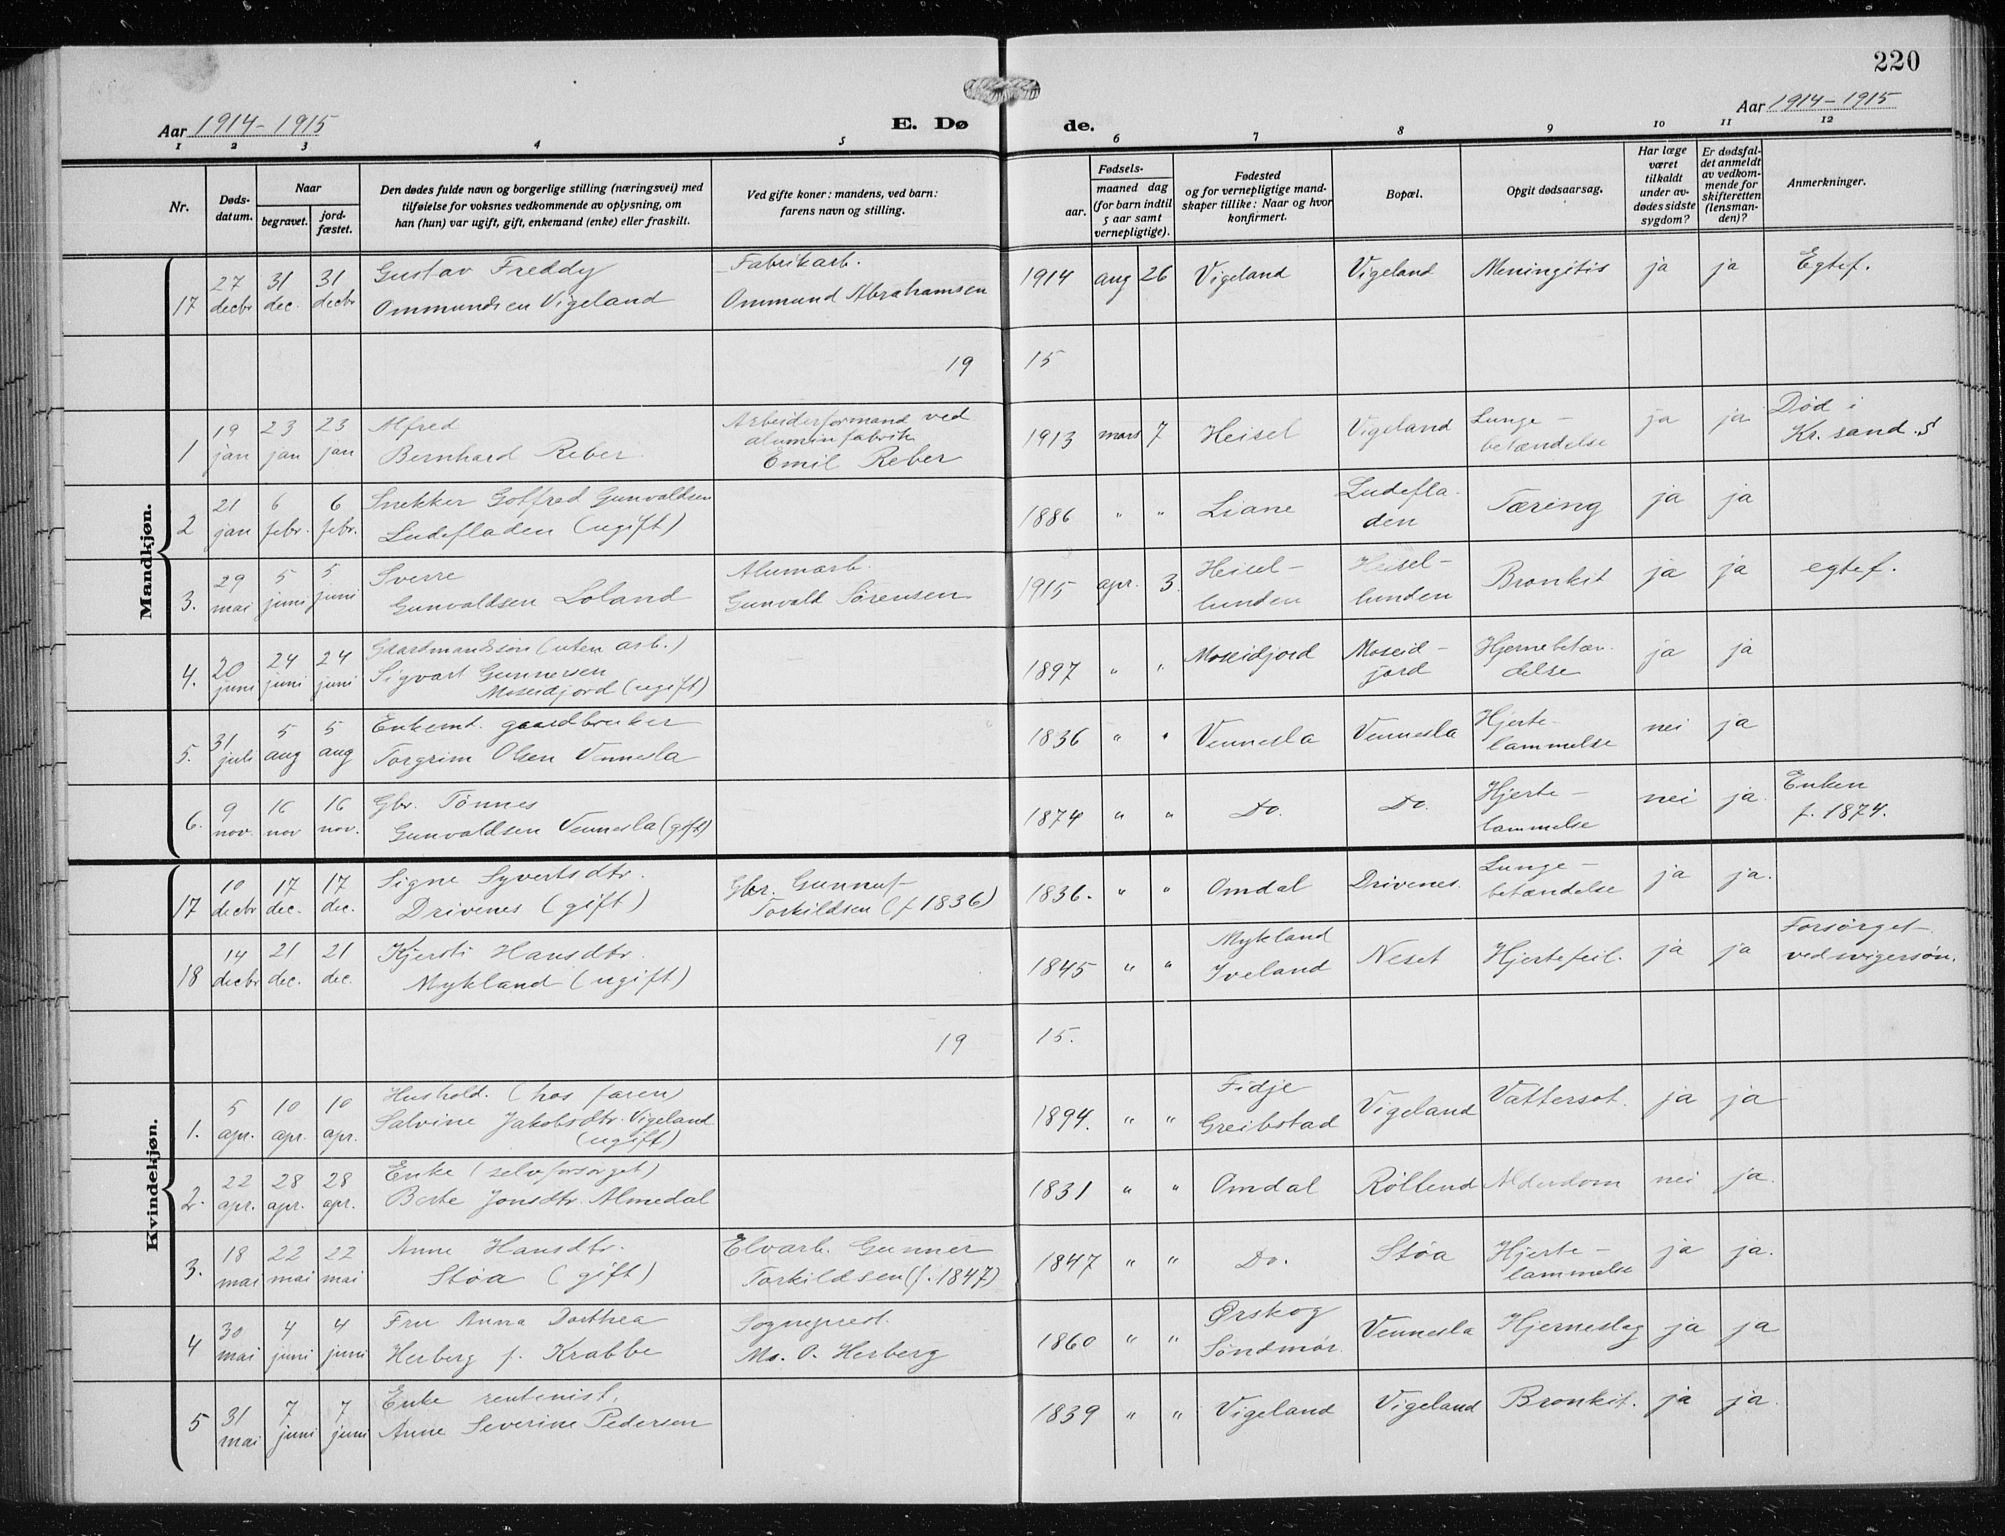 220
Aar 1914-1915
E. Dø
de.
Aar 1914-1915
1 2 3 4 5 6 7 8 9 10 11 12
Nr.
Døds-
datum.
Naar
begravet.
jord-
fæstet.
Den dødes fulde navn og borgerlige stilling (næringsvei) med
tilføielse for voksnes vedkommende av oplysning, om
han (hun) var ugift, gift, enkemand (enke) eller fraskilt.
Ved gifte koner: mandens, ved barn:
farens navn og stilling.
Fødsels-
aar.
maaned dag
(for barn indtil
5 aar samt
vernepligtige).
Fødested
og for vernepligtige mand-
skaper tillike: Naar og hvor
konfirmert.
Bopæl.
Opgit dødsaarsag.
Har læge
været
tilkaldt
under av-
dødes sidste
sygdom?
Er dødsfal-
det anmeldt
av vedkom-
mende for
skifteretten
(lensman-
den)?
Anmerkninger.
Mandkjøn.
17 27 decbr 31 dec. 31 decbr Gustav Freddy
Ommundsen Vigeland
Fabrikarb.
Ommund Abrahamsen
1914 aug 26 Vigeland Vigeland Meningitis ja ja Egtef.
19 15
1 19 jan 23 jan 23 jan Alfred
Bernhard Reber
Arbeiderformand ved
alumin fabrik
Emil Reber
1913 mars 7 Heisel Vigeland Lunge-
betændelse ja ja Død i
Kr. sand. S
2 21 jan 6 febr. 6 febr. Snekker Gotfred Gunvaldsen
Ludefladen (ugift)
1886 " " Liane Ludefla-
den Tæring ja ja
3. 29 mai 5 juni 5 juni Sverre
Gunvaldsen Loland
Alumarb.
Gunvald Sørensen
1915 apr. 3. Heisel-
lunden Heisel-
lunden Bronkit ja ja egtef.
4. 20 juni 24 juni 24 juni Gaardmandssøn (uten arb.)
Sigvart Gunnersen
Moseidjord (ugift)
1897 " " Moseidjord Moseid-
jord Hjernebetæn-
delse ja ja
5. 31 juli 5 aug 5 aug Enkemd. gaardbruker
Torgrim Olsen Vennesla
1836 " " Vennesla Vennesla Hjerte-
lammelse nei ja
6. 9 nov. 16 nov 16 nov. Gbr. Tønnes
Gunvaldsen Vennesla (gift)
1874 " " Do. Do. Hjerte-
lammelse nei ja. Enken
f. 1874.
Kvindekjøn.
17 10 decbr 17 dec. 17 dec. Signe Syvertsdtr.
Drivenes (gift)
Gbr. Gunnuf
Torkildsen (f 1836)
1836. " " Omdal Drivenes. Lunge-
betændelse ja ja.
18 14 decbr 21 dec. 21 dec. Kjersti Hansdtr.
Mykland (ugift)
1845 " " Mykland
Iveland Neset Hjertefeil. ja ja Forsørget
ved svigersøn.
19 15.
1. 5 apr. 10 apr. 10 apr. Hushold. (hos faren)
Salvine Jakobsdtr. Vigeland
(ugift)
1894. " " Fidje
Greibstad Vigeland Vattersot. ja ja
2. 22 apr. 28 apr. 28 apr. Enke (selvforsørget)
Berte Jonsdtr. Almedal
1831 " " Omdal Røllend Alderdom nei ja.
3. 18 mai 22 mai 22 mai Anne Hansdtr.
Støa (gift)
Elvarb. Gunner
Torkildsen (f. 1847)
1847 " " Do. Støa Hjerte-
lammelse ja ja.
4 30 mai 4 juni 4 juni Fru Anna Dorthea
Herberg f. Krabbe
Sogneprest.
Ms. O. Herberg
1860 " " Ørskog
Søndmør. Vennesla Hjerneslag ja ja
5 31 mai 7 juni 7 juni Enke rentenist.
Anne Severine Pedersen
1839 " " Vigeland Vigeland Bronkit. ja ja.